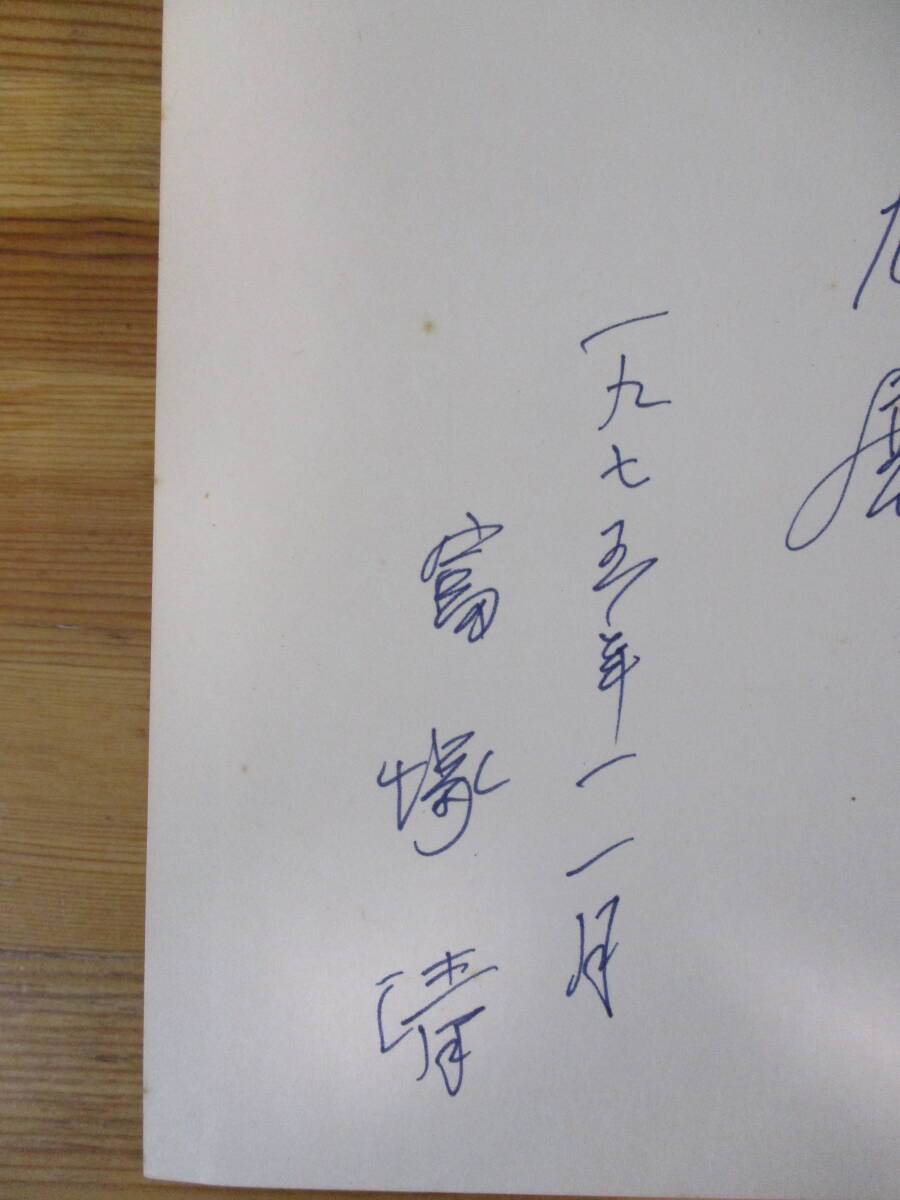 一九七五年一一月
富塚清